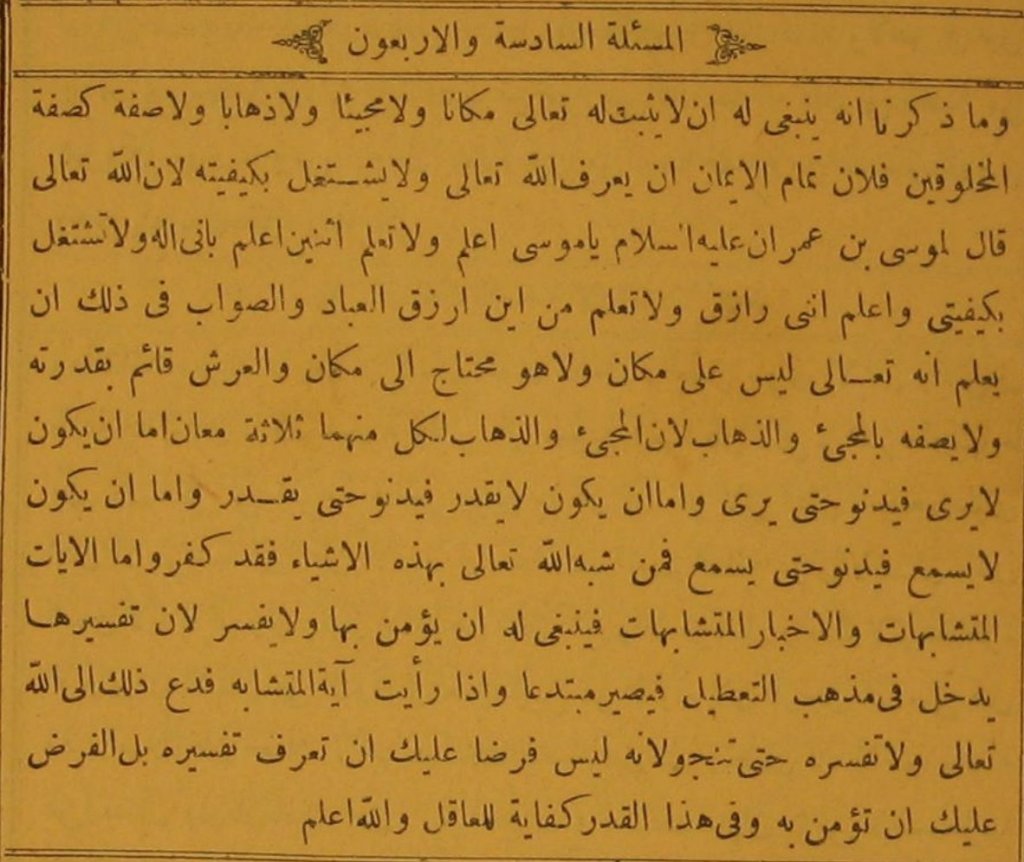 المسئلة السادسة والاربعون
وما ذكرنا انه ينبغى له ان لايثبت له تعالى مكانا ولا مجيئا ولا ذهابا ولا صفة كصفة
المخلوقين فلان تمام الايمان ان يعرف الله تعالى ولايشتغل بكيفيته لان الله تعالى
قال لموسى بن عمران عليه السلام ياموسى اعلم ولاتعلم اثنين اعلم بانى اله ولاتشتغل
بكيفيتى واعلم اننى رازق ولاتعلم من اين ارزق العباد والصواب فى ذلك ان
يعلم انه تعالى ليس على مكان ولاهو محتاج الى مكان والعرش قائم بقدرته
ولايصفه بالمجىء والذهاب لان المجىء والذهاب لكل منهما ثلاثة معان اما ان يكون
لايرى فيدنو حتى يرى واما ان يكون لايقدر فيدنو حتى يقدر واما ان يكون
لايسمع فيدنو حتى يسمع فمن شبه الله تعالى بهذه الاشياء فقد كفر واما الايات
المتشابهات والاخبار المتشابهات فينبغى له ان يؤمن بها ولايفسر لان تفسيرها
يدخل فى مذهب التعطيل فيصير مبتدعا واذا رأيت آية المتشابه فدع ذلك الى الله
تعالى ولاتفسره حتى تنجو لانه ليس فرضا عليك ان تعرف تفسيره بل الفرض
عليك ان تؤمن به وفى هذا القدر كفاية للعاقل والله اعلم